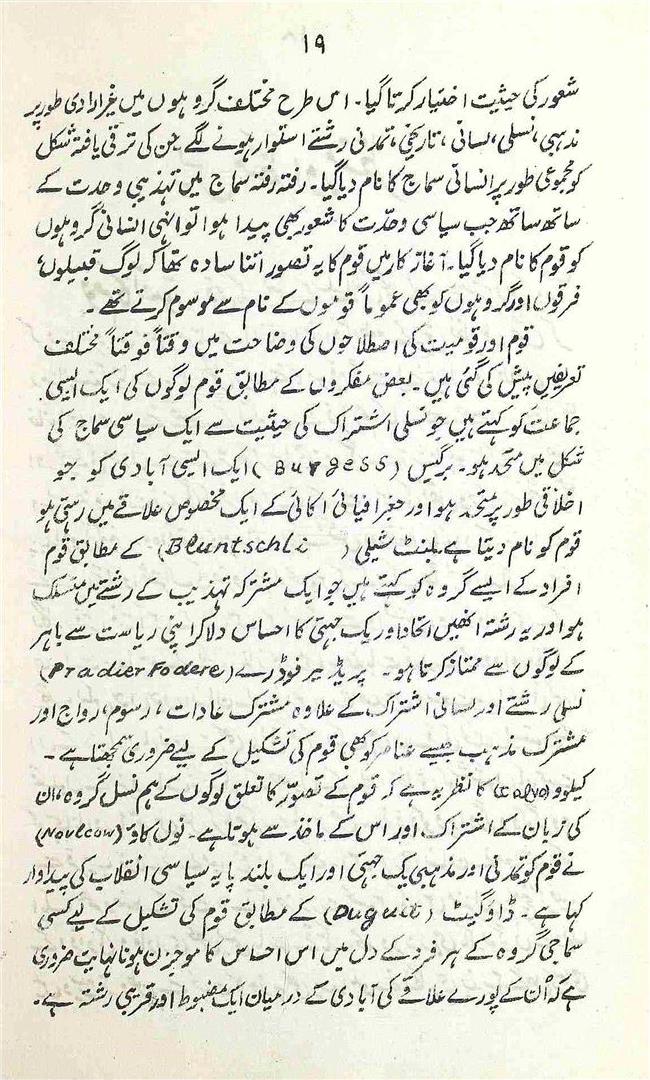 ۱۹
شعور کی حیثیت اختیار کرتا گیا۔ اس طرح مختلف گروہوں میں غیر ارادی طور پر
مذہبی، نسلی، لسانی، تاریخی، تمدنی رشتے استوار ہونے لگے جن کی ترقی یافتہ شکل
کو مجموعی طور پر انسانی سماج کا نام دیا گیا۔ رفتہ رفتہ سماج میں تہذیبی وحدت کے
ساتھ ساتھ جب سیاسی وحدّت کا شعور بھی پیدا ہوا تو انہی انسانی گروہوں
کو قوم کا نام دیا گیا۔ آغاز کار میں قوم کا یہ تصور اتنا سادہ تھا کہ لوگ قبیلوں،
فرقوں اور گروہوں کو بھی عموماً قوموں کے نام سے موسوم کرتے تھے۔
قوم اور قومیت کی اصطلاحوں کی وضاحت میں وقتاً فوقتاً مختلف
تعریفیں پیش کی گئی ہیں۔ بعض مفکروں کے مطابق قوم لوگوں کی ایک ایسی
جماعت کو کہتے ہیں جو نسلی اشتراک کی حیثیت سے ایک سیاسی سماج کی
شکل میں متحد ہو۔ برگیس (Burgess) ایک ایسی آبادی کو جو
اخلاقی طور پر متحد ہو اور جغرافیائی اکائی کے ایک مخصوص علاقے میں رہتی ہو
قوم کو نام دیتا ہے۔ بلنٹ شیلی (Bluntschli) کے مطابق قوم
افراد کے ایسے گروہ کو کہتے ہیں جو ایک مشترکہ تہذیب کے رشتے میں منسلک
ہو اور یہ رشتہ انھیں اتحاد اور یک جہتی کا احساس دلا کر اپنی ریاست سے باہر
کے لوگوں سے ممتاز کرتا ہو۔ پریڈیر فوڈرے (Pradier Fodere)
نسلی رشتے اور لسانی اشتراک کے علاوہ مشترک عادات، رسوم، رواج اور
مشترک مذہب جیسے عناصر کو بھی قوم کی تشکیل کے لیے ضروری سمجھتا ہے۔
کیلوو (Calvo) کا نظریہ ہے کہ قوم کے تصوّر کا تعلق لوگوں کے ہم نسل گروہ، ان
کی زبان کے اشتراک اور اس کے ماخذ سے ہوتا ہے۔ نول کاؤ (Novlcow)
نے قوم کو تمدنی اور مذہبی یک جہتی اور ایک بلند پایہ سیاسی انقلاب کی پیداوار
کہا ہے۔ ڈاوگیٹ (Duguit) کے مطابق قوم کی تشکیل کے لیے کسی
سماجی گروہ کے ہر فرد کے دل میں اس احساس کا موجزن ہونا نہایت ضروری
ہے کہ اُن کے پورے علاقے کی آبادی کے درمیان ایک مضبوط اور قریبی رشتہ ہے۔